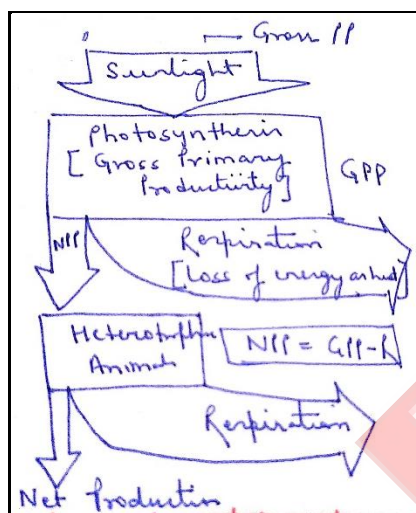 Gross PP
Sunlight
Photosynthesis
[Gross Primary
Productivity]
GPP
NPP
Respiration
[Loss of energy as heat]
Heterotrophic
Animals
NPP = GPP-R
Respiration
Net Production